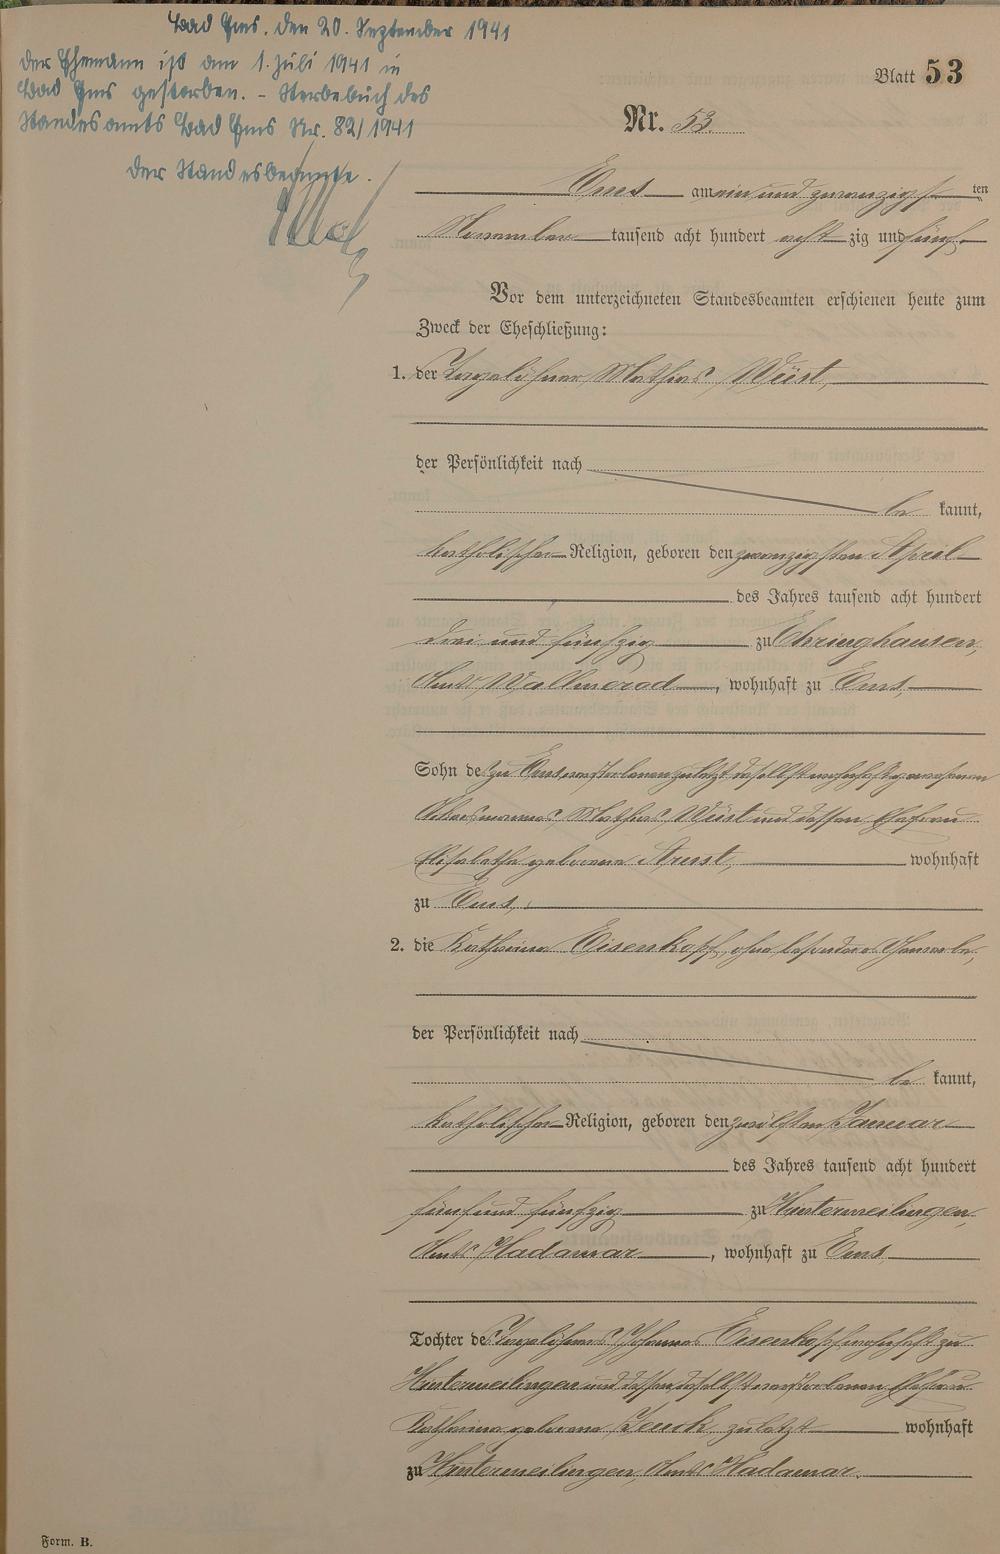 Bad Ems, den 20. September 1941
Der Ehemann ist am 1. Juli 1941 in
Bad Ems gestorben. - Sterbebuch des
Standesamts Bad Ems Nr. 82/1941
Der Standesbeamte.
Blatt 53
Nr. 53.
Ems am ein und zwanzigsten
November tausend acht hundert acht zig und fünf
Vor dem unterzeichneten Standesbeamten erschienen heute zum
Zweck der Eheschließung:
1. der Tagelöhner Mathias Wüst,
der Persönlichkeit nach
be kannt,
katholischer Religion, geboren den zwanzigsten April
des Jahres tausend acht hundert
drei und fünfzig zu Ehringhausen,
Amts Wallmerod, wohnhaft zu Ems,
Sohn des zu Ems verstorbenen zuletzt daselbst wohnhaft gewesenen
Ackersmannes Mathias Wüst und dessen Ehefrau
Elisabetha geborene wohnhaft
zu Ems,
2. die Katharina Eisenkopf, ohne besonderes Gewerbe,
der Persönlichkeit nach
be kannt,
katholischer Religion, geboren den zwölften Januar
des Jahres tausend acht hundert
fünf und fünfzig zu Hintermeilingen,
Amts Hadamar, wohnhaft zu Ems
Tochter des Tagelöhners Johannes Eisenkopf wohnhaft zu
Hintermeilingen und dessen daselbst verstorbenen Ehefrau
Katharina geborene Jeuck zuletzt wohnhaft
zu Hintermeilingen, Amts Hadamar.
Form. B.